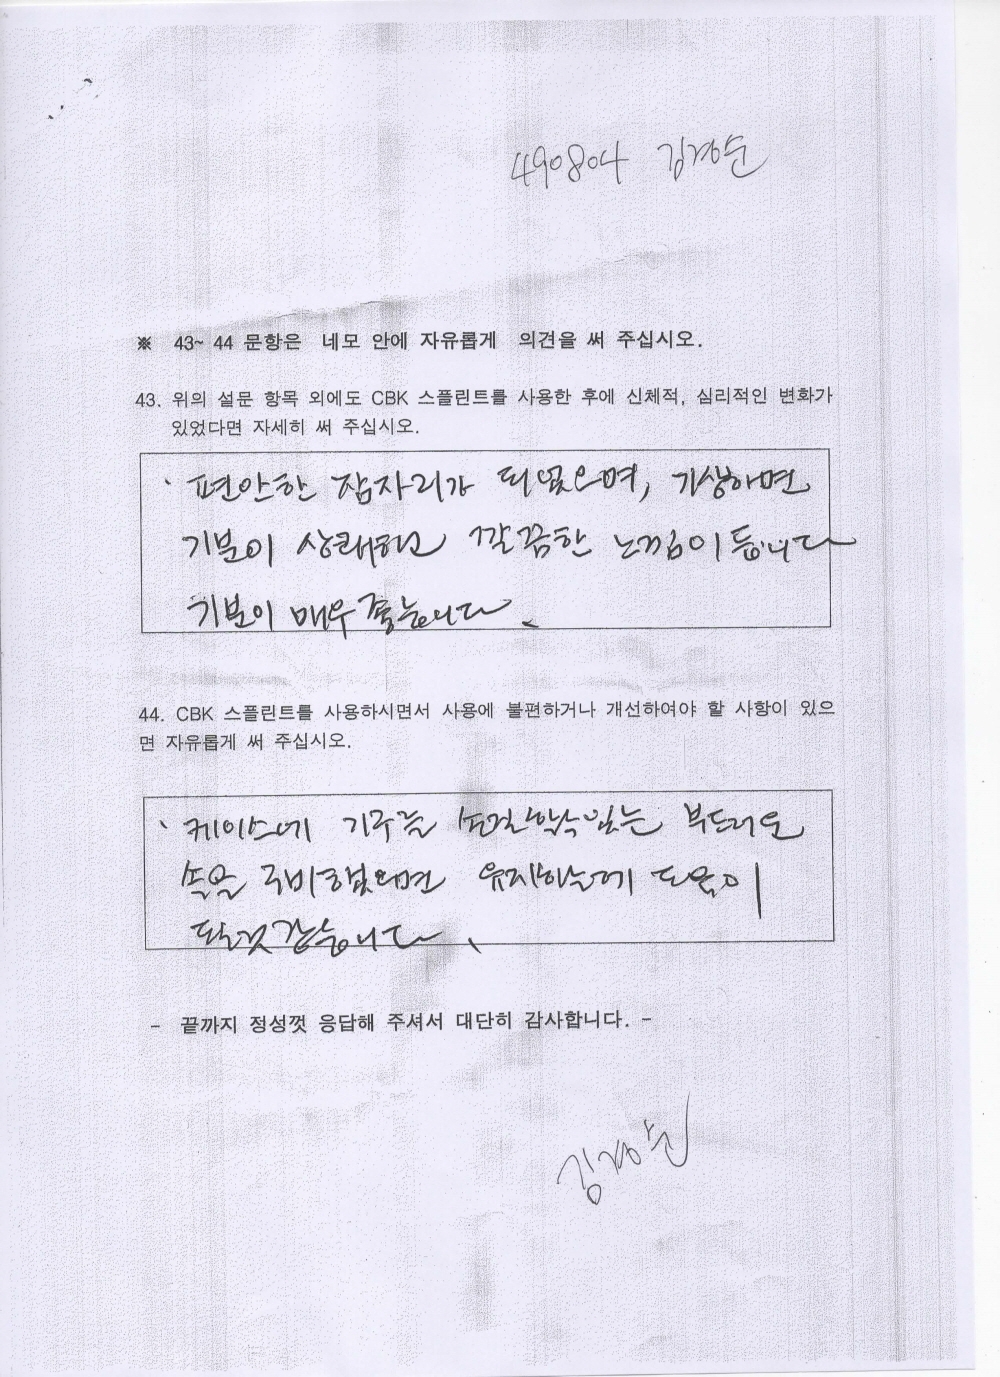 490804 김경순
※ 43~ 44 문항은 네모 안에 자유롭게 의견을 써 주십시오.
43. 위의 설문 항목 외에도 CBK 스플린트를 사용한 후에 신체적, 심리적인 변화가
있었다면 자세히 써 주십시오.
편안한 잠자리가 되었으며, 기상하면
기분이 상쾌하고 깔끔한 느낌이 듭니다
기분이 매우 좋습니다.
44. CBK 스플린트를 사용하시면서 사용에 불편하거나 개선하여야 할 사항이 있으
면 자유롭게 써 주십시오.
케이스에 기구를 손질할수있는 부드러운
솔을 구비했으면 유지하는데 도움이
될것 같습니다.
- 끝까지 정성껏 응답해 주셔서 대단히 감사합니다. -
김경순